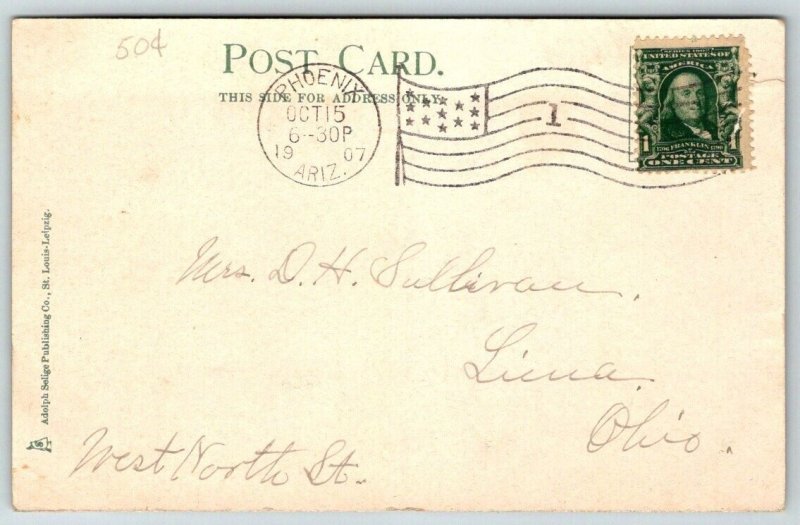 50¢
POST CARD.
THIS SIDE FOR ADDRESS ONLY.
PHOENIX
OCT 15
6--30P
19 07
ARIZ.
1
SERIES 1902
UNITED STATES OF
AMERICA
1 1706 FRANKLIN 1790 1
POSTAGE
ONE CENT
Mrs. D. H. Sullivan.
Lima.
Ohio.
West North St.
Adolph Selige Publishing Co., St. Louis-Leipzig.